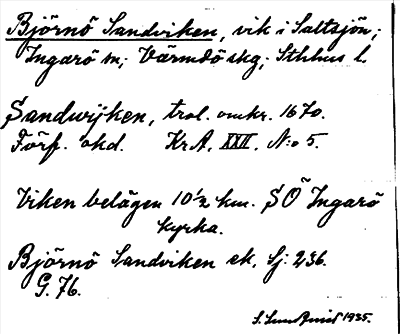 Björnö Sandviken, vik i Saltsjön;
Ingarö sn; Värmdö skg; Sthlms l.
Sandwijken, trol. omkr. 1670.
Förf. okd. KrA. XXII. N:o 5.
Viken belägen 10 1/2 km. SÖ Ingarö
kyrka.
Björnö Sandviken ek. Sj: 236.
G. 76.
S. Lundquist 1935.